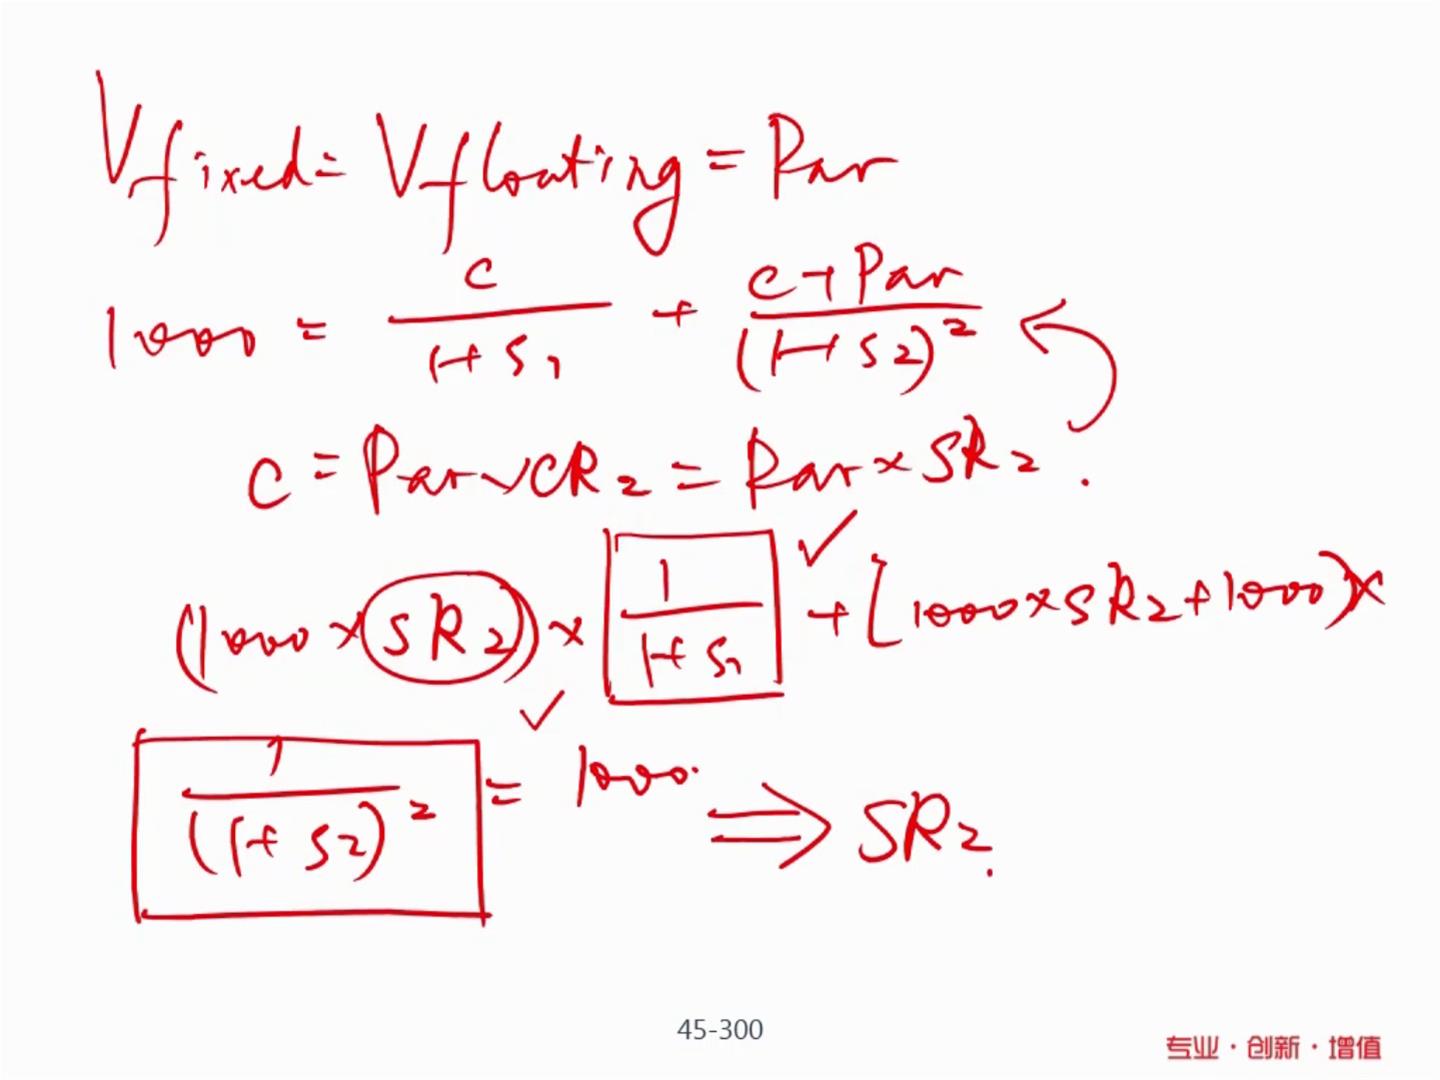 Vfixed = Vfloating = Par
1000 = c/(1+S1) + (c+Par)/(1+S2)²
c = Par×CR2 = Par×SR2.
(1000×SR2)× 1/(1+S1) ✓ + [1000×SR2+1000)×
1/(1+S2)² ✓ = 1000. ⇒ SR2.
45-300
专业·创新·增值